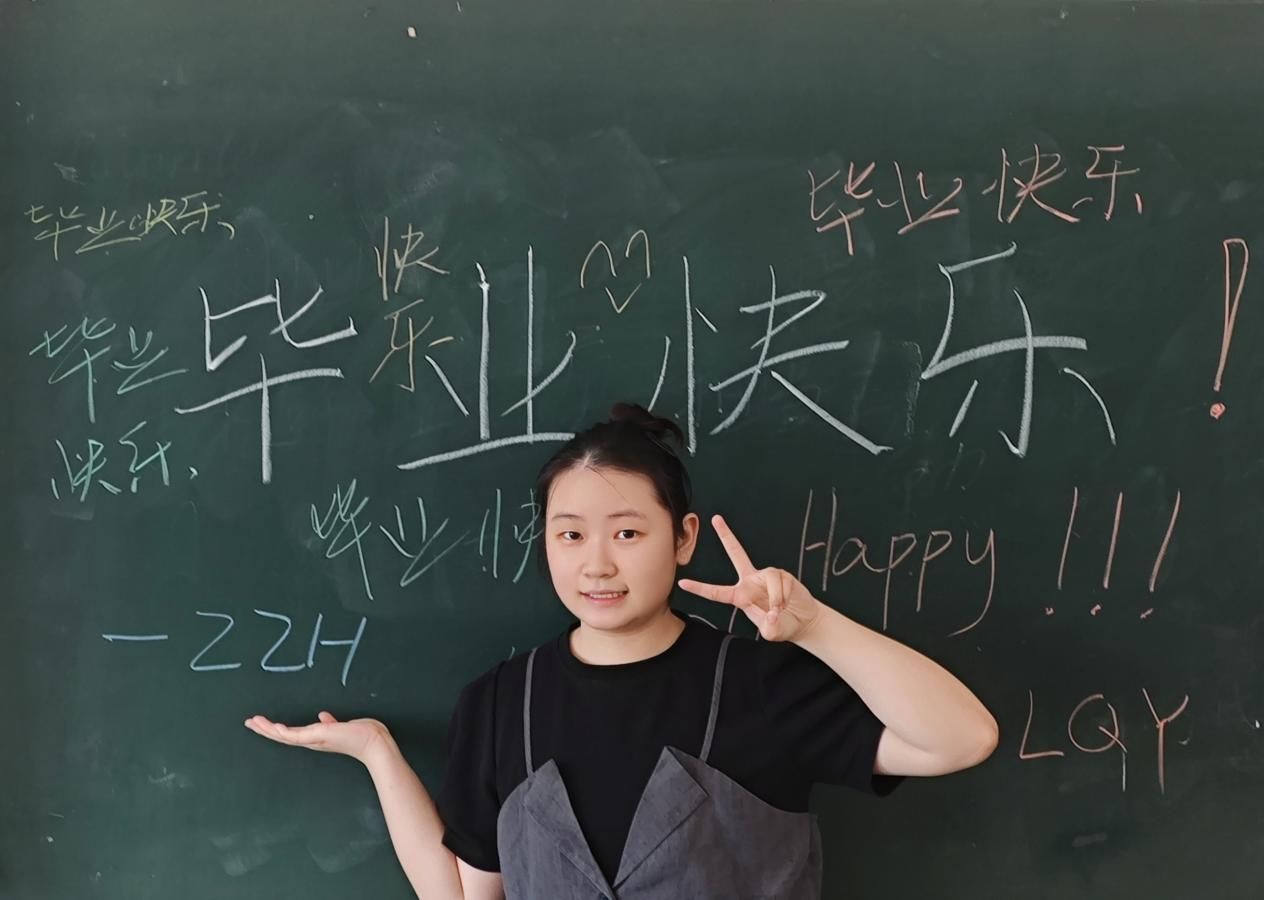 毕业快乐
毕业快乐
快
乐
毕业快乐!
毕业
快乐
毕业快
Happy!!!
-ZZH
LQY